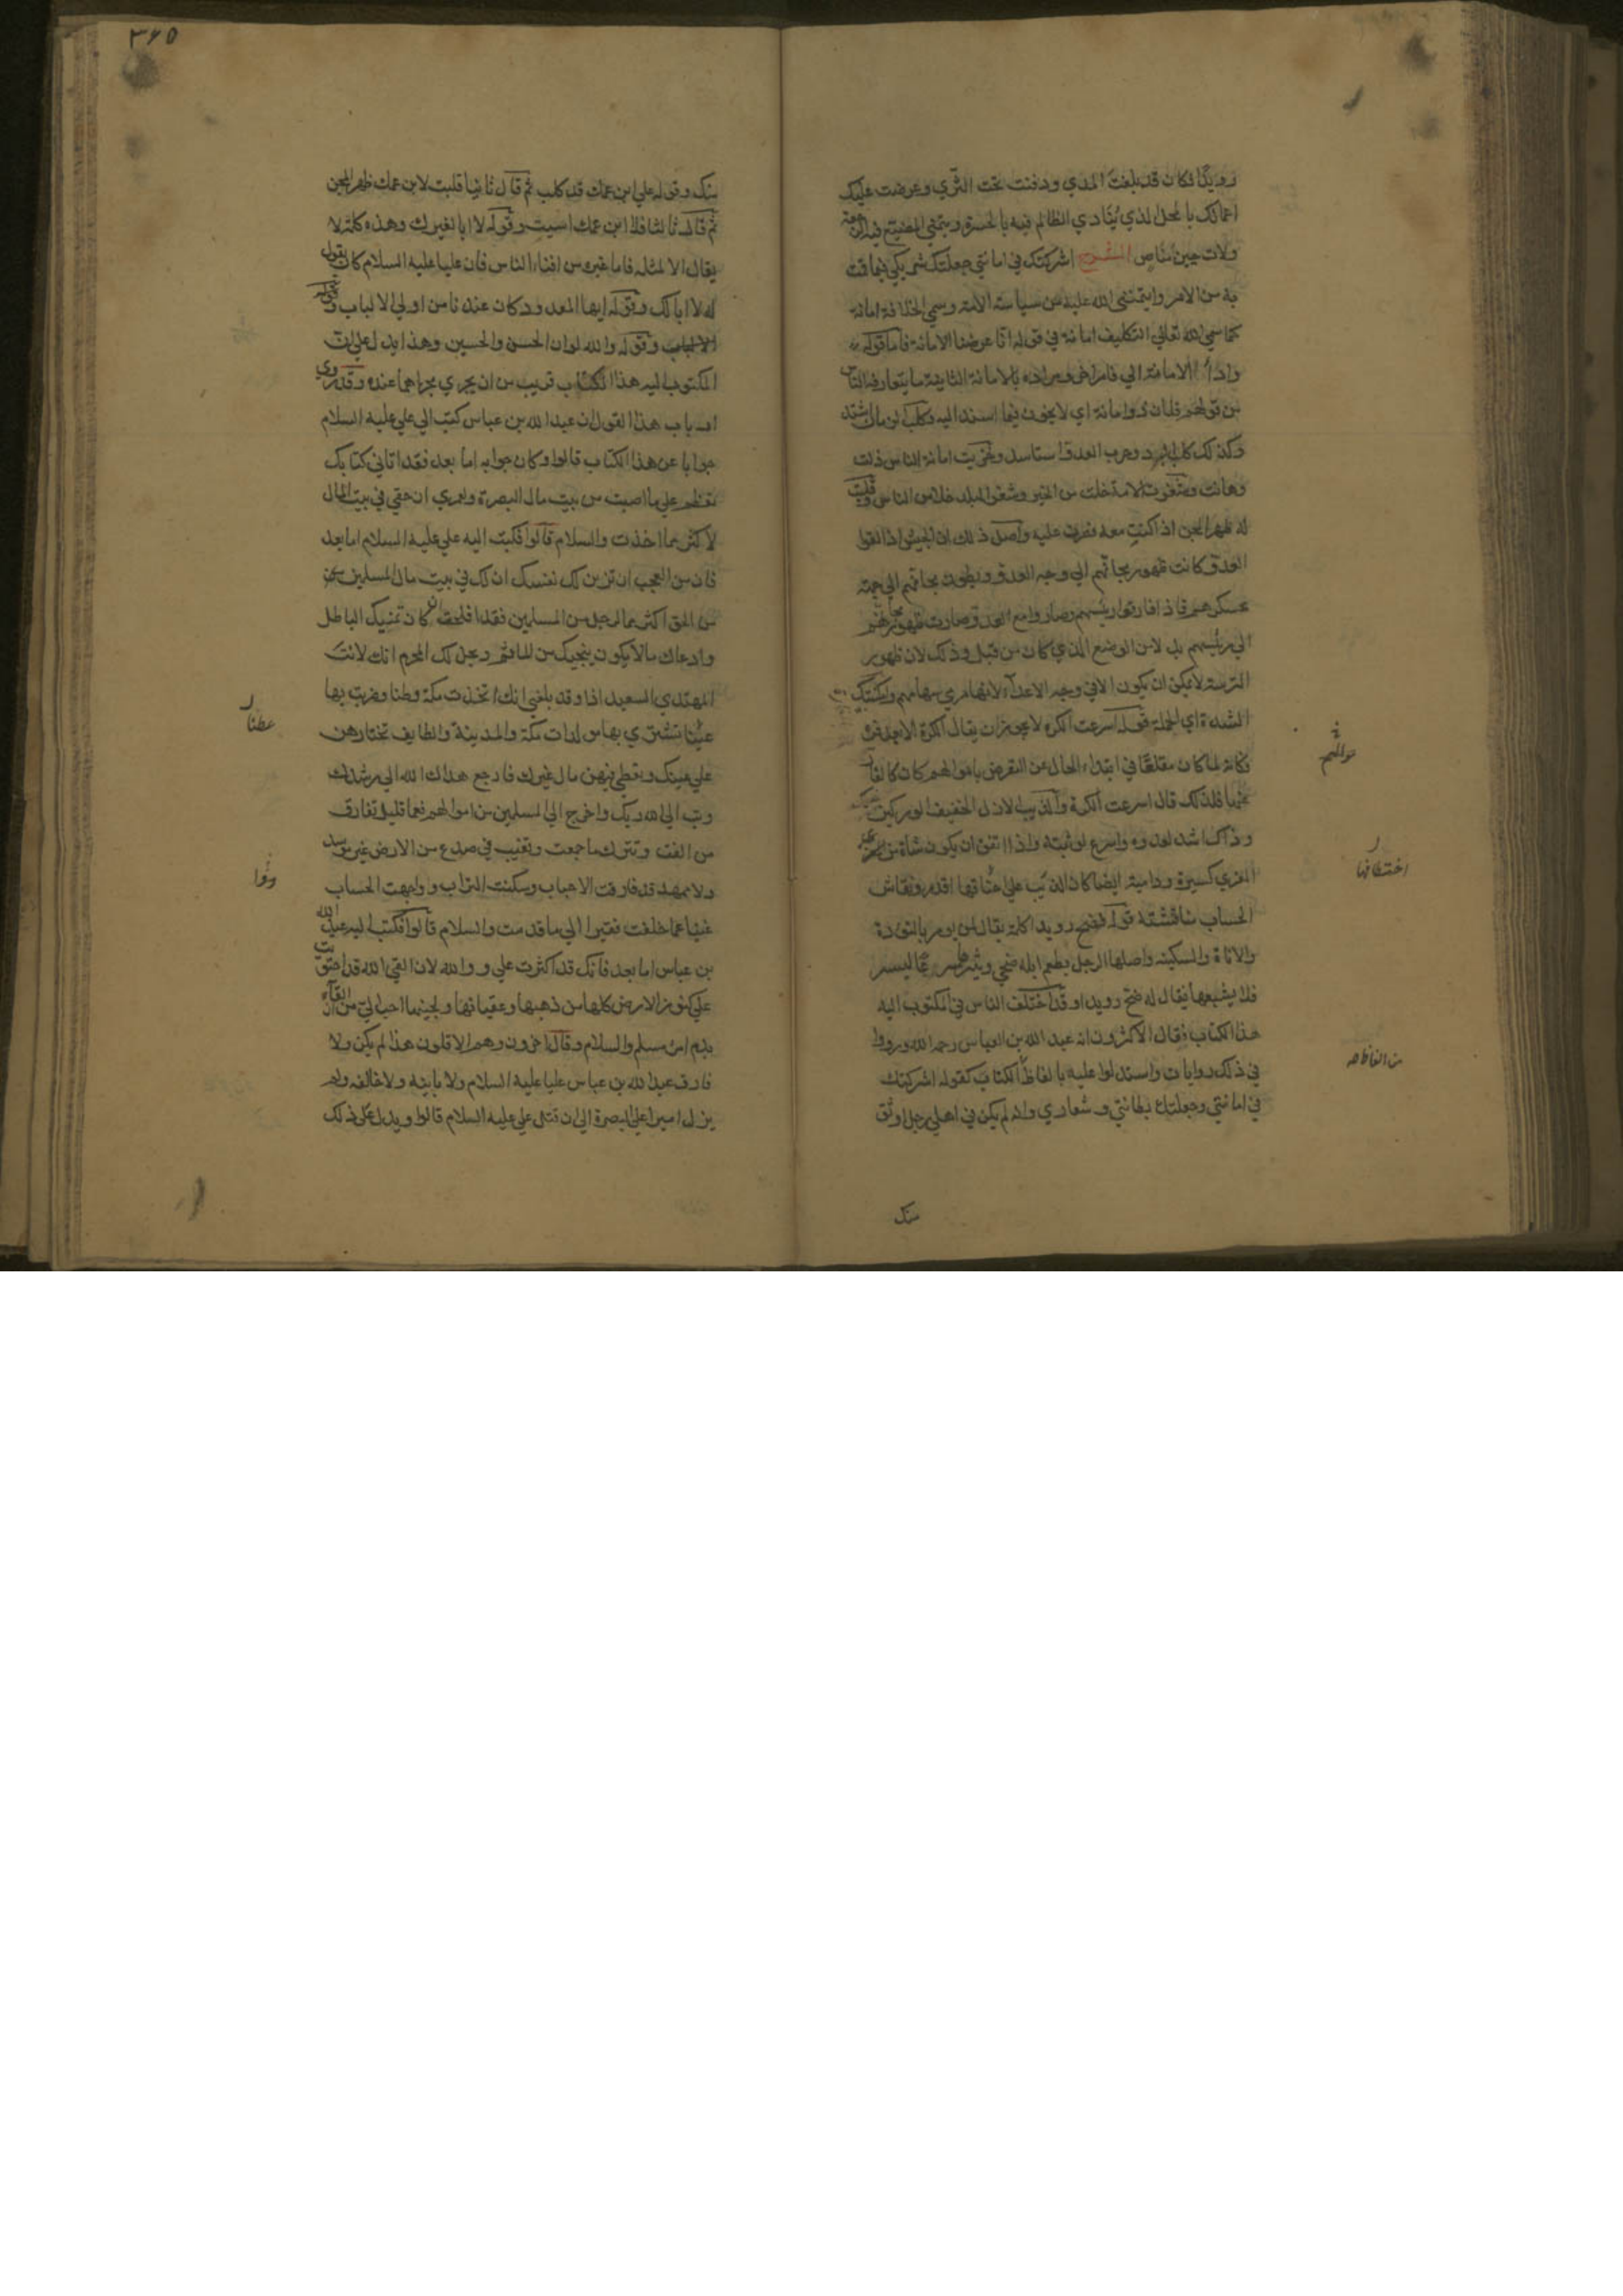 رويدًا فكان قد بلغتَ المدي ودفنت تحت الثّري وعرضت عليك
اعمالك بالمحل الذي يُنادي الظالم فيه بالحسرة ويتمني المضيّع فيه الرجعة
ولات حين مناص الشرح اشركتك في امانتي جعلتك شريكي فيما قمت
به من الامر وايتمنني الله عليه من سياسة الامة وسمي الخلافة امانة
كما سمي الله تعالي التكليف امانة في قوله انّا عرضنا الامانة فاما قوله
واداء الامانة الي فامر اخر ومراده بالامانة الثانية ما يتعارفه الناس
من قولهم فلان ذو امانة اي لا يخون فيما اسند اليه وكلب الزمان اشتد
وكذلك كلب البرد وحرب العدوّ استاسد وخزيت امانة الناس ذلت
وهانت وشغرت الامة خلت من الخير وشغر البلد خلا من الناس وقلبت
له ظهر المجن اذا كنت معه فصرت عليه واصل ذلك ان الجيش اذا لقوا
العدوّ كانت ظهور مجانّهم الي وجه العدوّ وبطون مجانّهم الي جهة
عسكرهم فاذا فارقوا رئيسهم وصاروا مع العدوّ صارت ظهور مجانّهم
الي رئيسهم بل لامن الوضع الذي كان من قبل وذلك لان ظهور
الترسة لا يمكن ان يكون الا في وجه الاعداء لانها مرمي سهامهم وامكنتك
الشدة اي الحملة قوله اسرعت الكرة لا يجوز ان يقال الكرة الا بعد فرّ
فكانه لما كان مقلعًا في ابتداء الحال عن التعرض باموالهم كان كالفارّ
عنها فلذلك قال اسرعت الكرة والذيب الازل الخفيف الوركين
وذلك اشد لعدوه واسرع لوثبته واذا اتفق ان يكون شاة من
المعزي كسيرة ودامية ايضا كان الذيب علي اختطافها اقدر ونقاش
الحساب مناقشته قوله فضح رويدا كلمة يقال لمن يومر بالتؤدة
والاناة والسكينة واصلها الرجل يطعم ابله ضحي ويسيرها مسرعًا ليسير
فلا يشبعها فيقال له ضح رويدا وقد اختلف الناس في المكتوب اليه
هذا الكتاب فقال الاكثرون انه عبد الله بن العباس رحمه الله ورووا
في ذلك روايات واستدلوا عليه بالفاظ الكتاب كقوله اشركتك
في امانتي وجعلتك بطانتي وشعاري وانه لم يكن في اهلي رجل اوثق
منك
اختطافها
من الفاظه
٣٦٥
منك وقوله علي ابن عمك قد كلب ثم قال ثانيا قلبت لابن عمك ظهر المجن
ثم قال ثالثا فلا ابن عمك اسيت وقوله لا ابا لغيرك وهذه كلمة لا
يقال الا لمثله فاما غيره من افناء الناس فان عليا عليه السلام كان يقول
له لا ابا لك وقوله ايها المعدود كان عندنا من اولي الالباب
وقوله والله لو ان الحسن والحسين وهذا يدل علي ان
المكتوب اليه هذا الكتاب قريب من ان يجري مجراهما عنده وقد روي
ارباب هذا القول ان عبد الله بن عباس كتب الي علي عليه السلام
جوابا عن هذا الكتاب قالوا وكان جوابه اما بعد فقد اتاني كتابك
تعظم علي ما اصبت من بيت مال البصرة ولعمري ان حقي في بيت المال
لاكثر مما اخذت والسلام قالوا فكتب اليه علي عليه السلام اما بعد
فان من العجب ان تزين لك نفسك ان لك في بيت مال المسلمين
من الحق اكثر مما لرجل من المسلمين فقد افلحت ان كان تمنيك الباطل
وادعاك ما لا يكون ينجيك من الماثم ويحل لك المحرم انك لانت
المهتدي السعيد اذا وقد بلغني انك اتخذت مكة وطنا وضربت بها
عطنا تشتري بها مولدات مكة والمدينة والطايف تختارهن
علي عينك وتعطي فيهن مال غيرك فارجع هداك الله الي رشدك
وتب الي الله ربك واخرج الي المسلمين من اموالهم فعما قليل تفارق
من الفت وتترك ما جمعت وتغيب في صدع من الارض غير موسد
ولا ممهد قد فارقت الاحباب وسكنت التراب وواجهت الحساب
غنيا عما خلفت فقيرا الي ما قدمت والسلام قالوا فكتب اليه عبد الله
بن عباس اما بعد فانك قد اكثرت علي ووالله لان القي الله قد احتويت
علي كنوز الارض كلها من ذهبها وعقيانها ولجينها احب الي من ان القاه
بدم امرء مسلم والسلام وقال اخرون وهم الاقلون هذا لم يكن ولا
فارق عبد الله بن عباس عليا عليه السلام ولا باينه ولا خالفه ولم
يزل اميرا علي البصرة الي ان قتل علي عليه السلام قالوا ويدل علي ذلك
عطنا